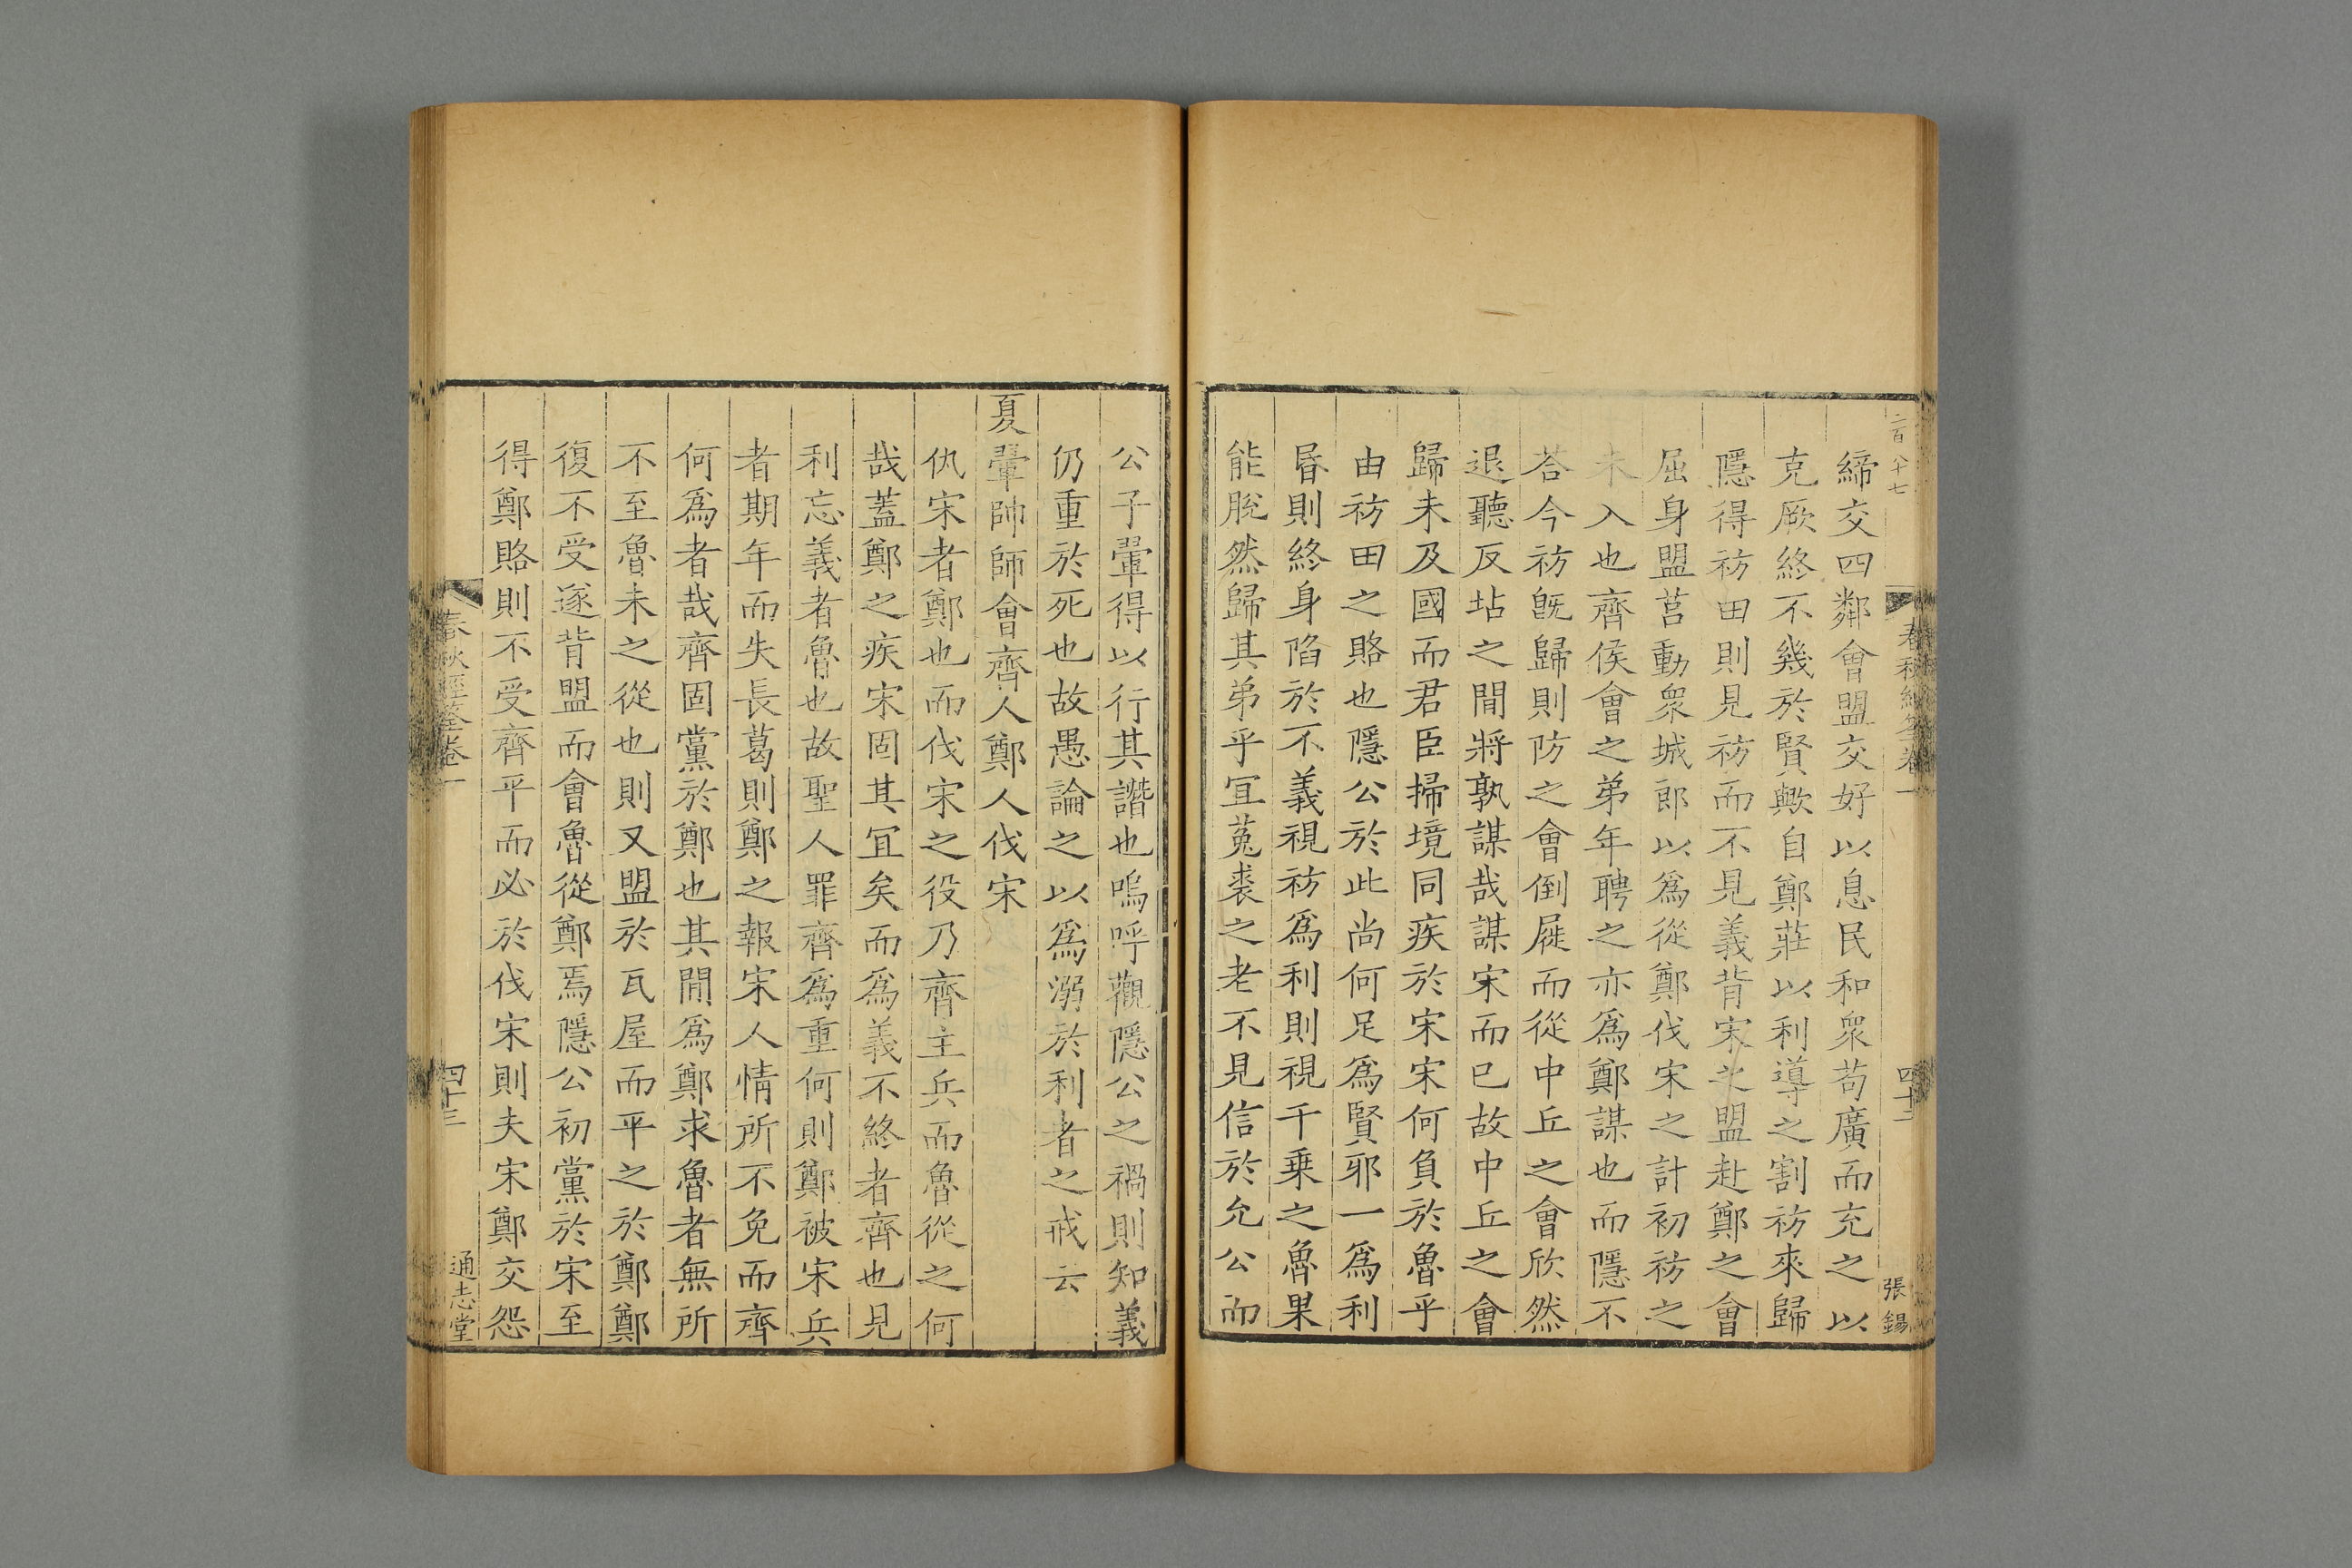 二百八十七
春秋經筌卷一
四十二
張錫
締交四鄰會盟交好以息民和衆苟廣而充之以
克厥終不幾於賢歟自鄭莊以利導之割祊來歸
隱得祊田則見祊而不見義背宋之盟赴鄭之會
屈身盟莒動衆城郎以爲從鄭伐宋之計初祊之
未入也齊侯會之弟年聘之亦爲鄭謀也而隱不
荅今祊旣歸則防之會倒屣而從中丘之會欣然
退聽反坫之間將孰謀哉謀宋而已故中丘之會
歸未及國而君臣掃境同疾於宋宋何負於魯乎
由祊田之賂也隱公於此尚何足爲賢邪一爲利
昬則終身陷於不義視祊爲利則視千乗之魯果
能脫然歸其弟乎冝菟裘之老不見信於允公而
公子翬得以行其譖也嗚呼觀隱公之禍則知義
仍重於死也故愚論之以爲溺於利者之戒云
夏翬帥師會齊人鄭人伐宋
仇宋者鄭也而伐宋之役乃齊主兵而魯從之何
哉蓋鄭之疾宋固其冝矣而爲義不終者齊也見
利忘義者魯也故聖人罪齊爲重何則鄭被宋兵
者期年而失長葛則鄭之報宋人情所不免而齊
何爲者哉齊固黨於鄭也其閒爲鄭求魯者無所
不至魯未之從也則又盟於瓦屋而平之於鄭鄭
復不受遂背盟而會魯從鄭焉隱公初黨於宋至
得鄭賂則不受齊平而必於伐宋則夫宋鄭交怨
春秋經筌卷一
四十三
通志堂